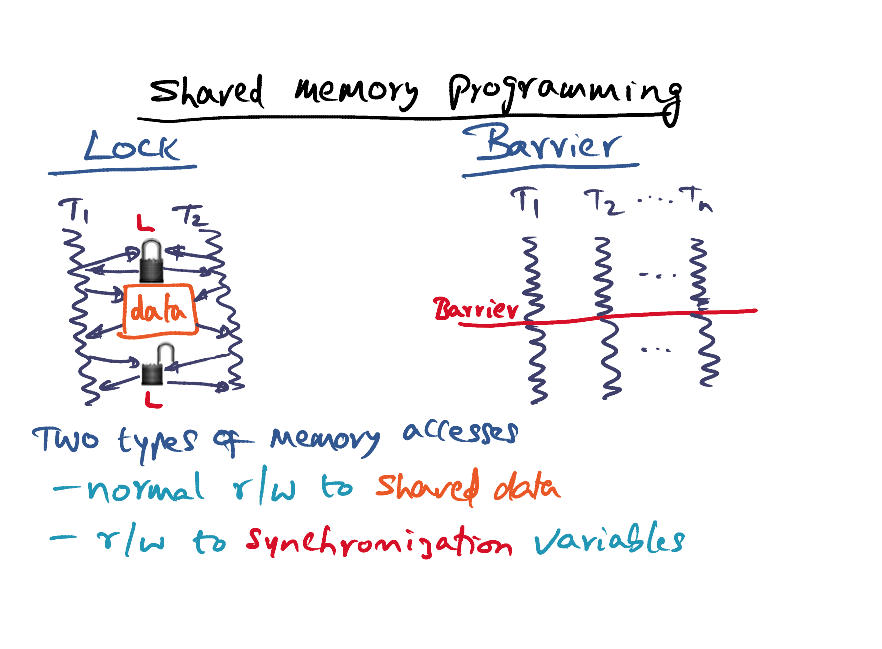 Shared memory Programming
Lock
Barrier
T1 T2
L
data
L
T1 T2 .... Tn
...
Barrier
...
Two types of memory accesses
- normal r/w to shared data
- r/w to synchronization variables